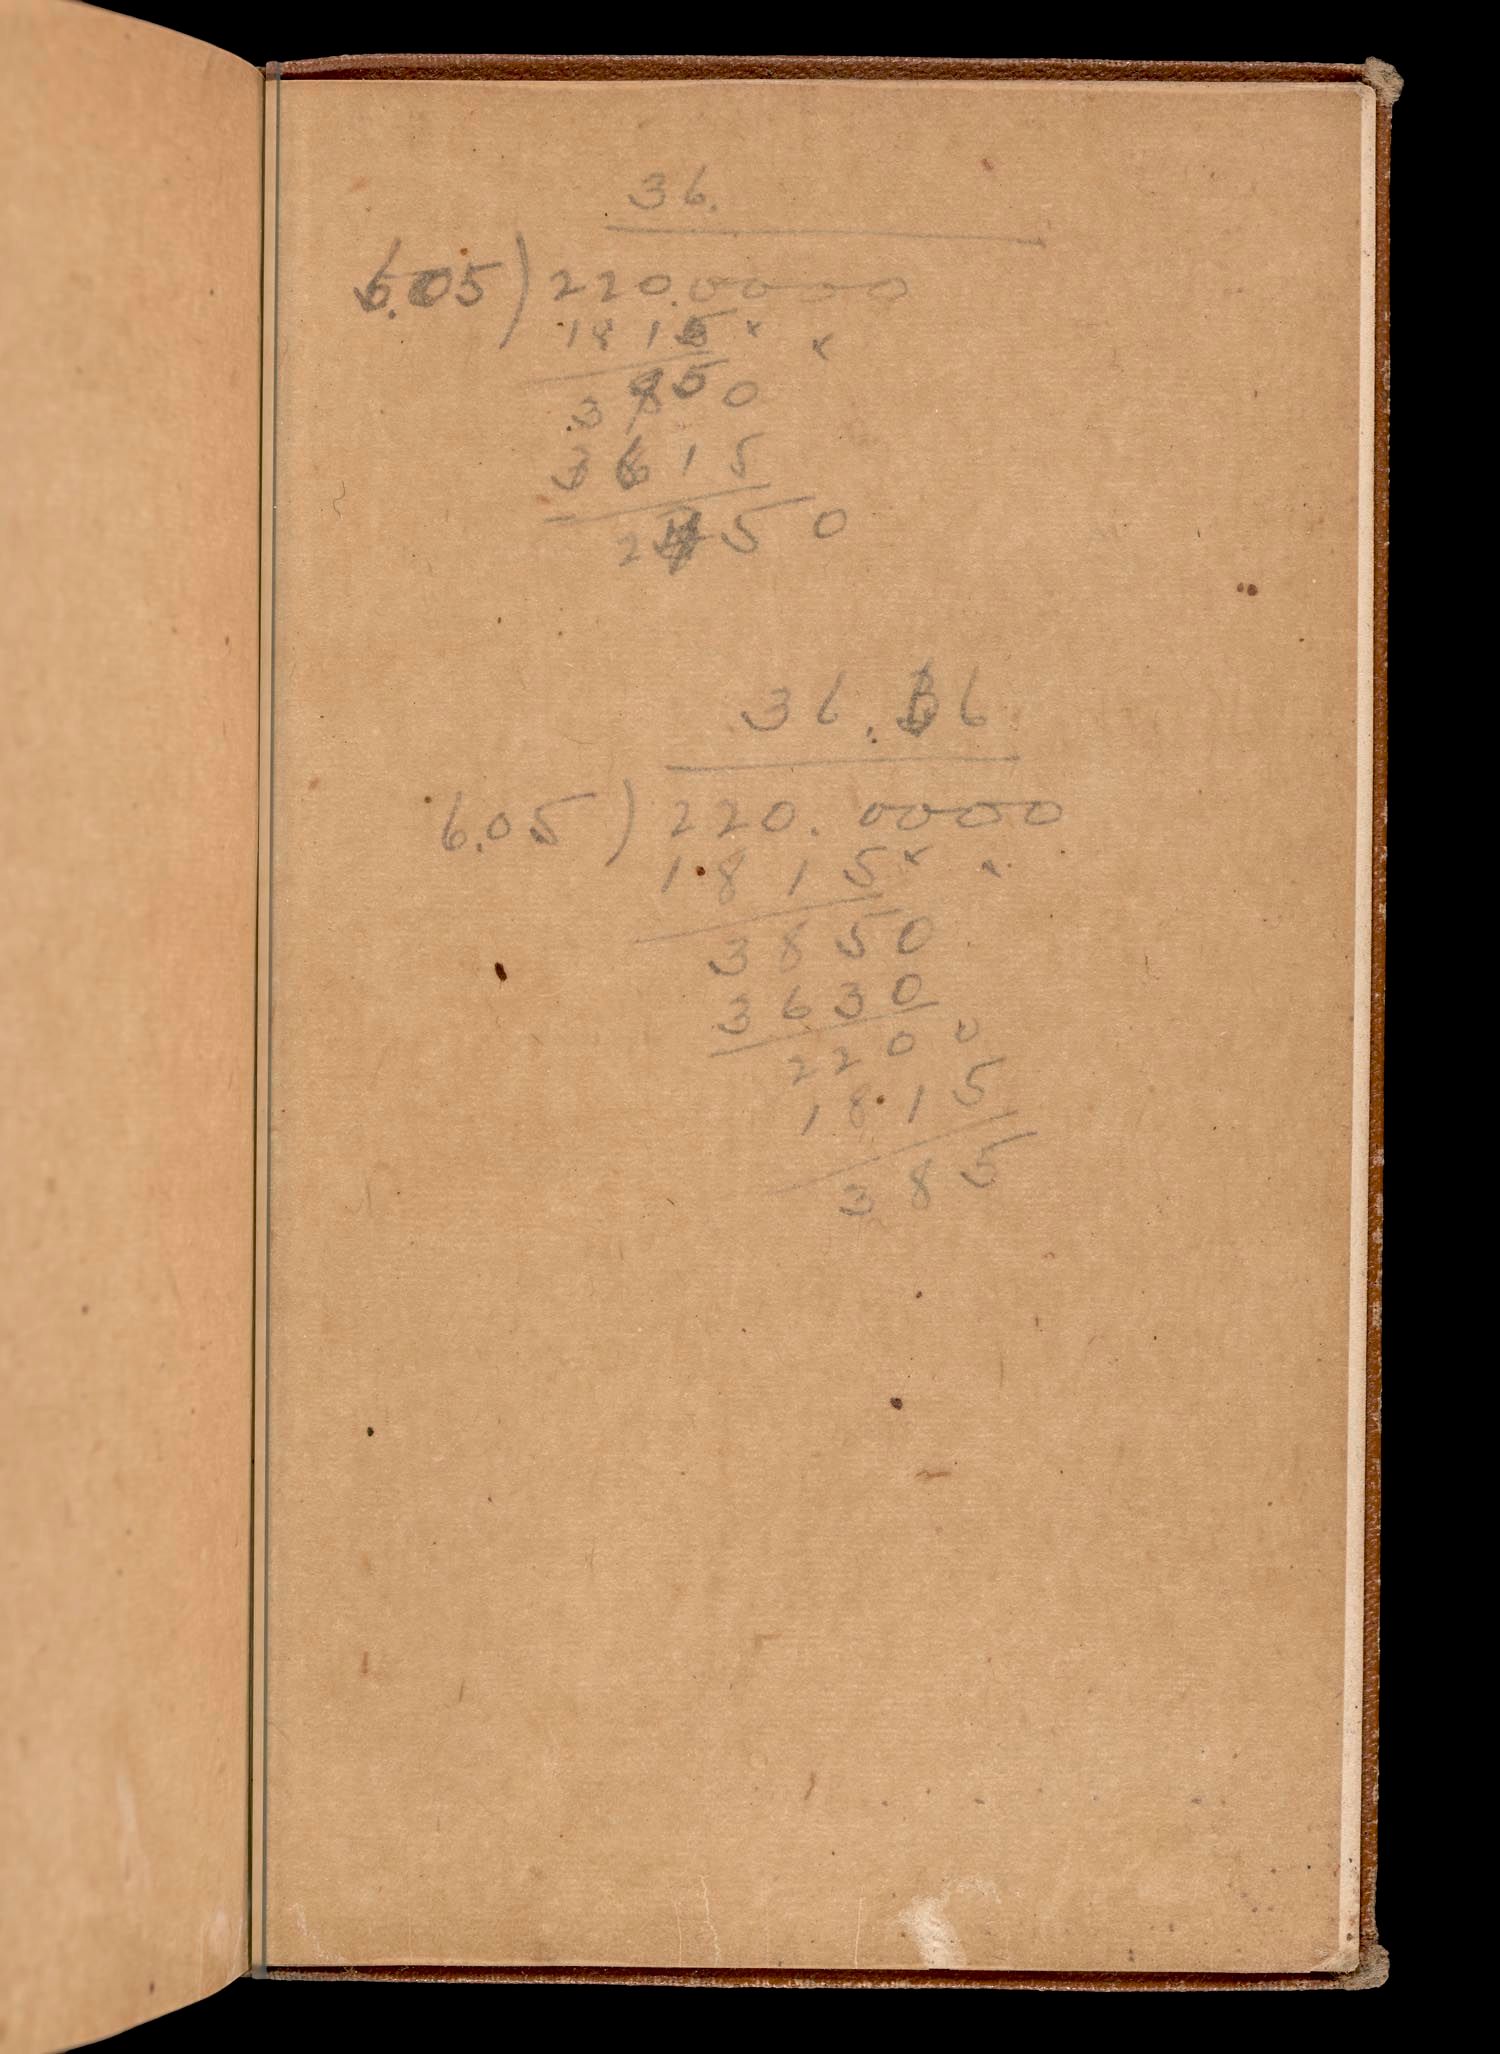 36.
6.05 ) 220.00000
1815 x x
3850
3615
2 50
36. 6
6.05 ) 220.0000
1815 x x
3850
3630
2200 0
1815
385